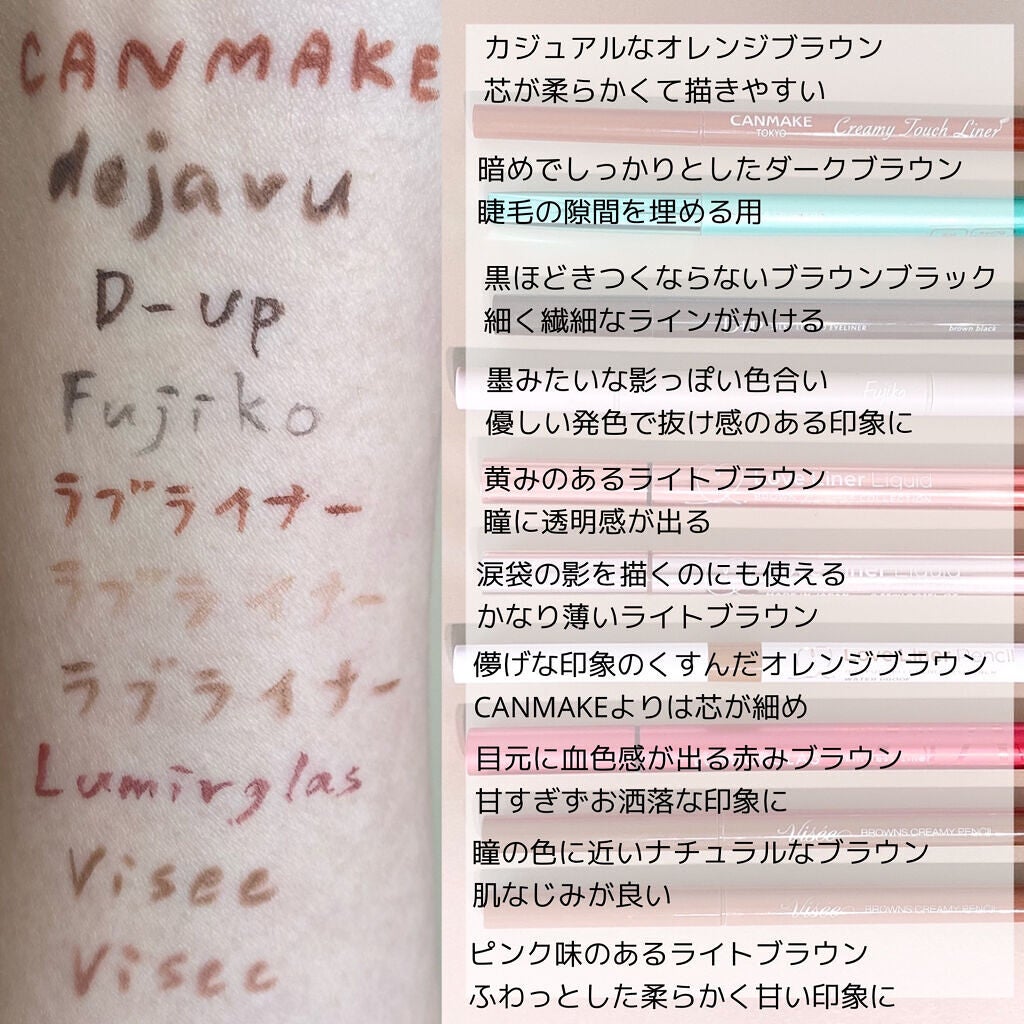 CANMAKE
dejavu
D-up
Fujiko
ラブライナー
ラブライナー
ラブライナー
Lumirglas
Visee
Visee
カジュアルなオレンジブラウン
芯が柔らかくて描きやすい
CANMAKE
TOKYO
Creamy Touch Liner
暗めでしっかりとしたダークブラウン
睫毛の隙間を埋める用
黒ほどきつくならないブラウンブラック
細く繊細なラインがかける
EYELINER
brown black
墨みたいな影っぽい色合い
Fujiko
優しい発色で抜け感のある印象に
黄みのあるライトブラウン
Liner Liquid
COLLECTION
瞳に透明感が出る
涙袋の影を描くのにも使える
Liquid
かなり薄いライトブラウン
儚げな印象のくすんだオレンジブラウン
Pencil
CANMAKEよりは芯が細め
目元に血色感が出る赤みブラウン
甘すぎずお洒落な印象に
Visée BROWNS CREAMY PENCIL
瞳の色に近いナチュラルなブラウン
肌なじみが良い
Visée BROWNS CREAMY PENCIL
ピンク味のあるライトブラウン
ふわっとした柔らかく甘い印象に